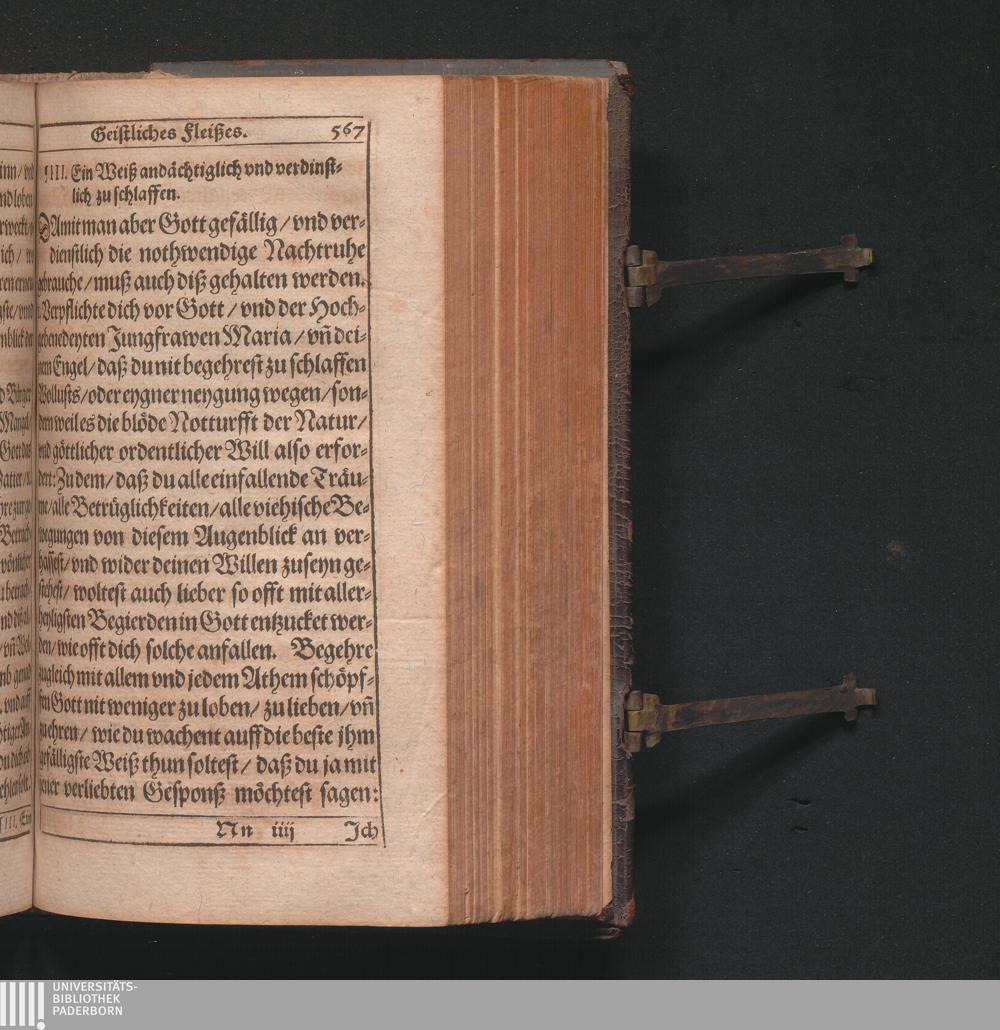 Geistliches Fleißes. 567
IIII. Ein Weiß andächtiglich vnd verdinst-
lich zu schlaffen.
DAmit man aber Gott gefällig / vnd ver-
dienstlich die nothwendige Nachtruhe
gebrauche / muß auch diß gehalten werden.
Verpflichte dich vor Gott / vnd der Hoch-
gebenedeyten Jungfrawen Maria / vñ dei-
nem Engel / daß du nit begehrest zu schlaffen
Wollusts / oder eygner neygung wegen / son-
dern weil es die blöde Notturfft der Natur /
vnd göttlicher ordentlicher Will also erfor-
dert: Zu dem / daß du alle einfallende Träu-
me / alle Betrüglichkeiten / alle viehische Be-
wegungen von diesem Augenblick an ver-
hassest / vnd wider deinen Willen zuseyn ge-
stehest / woltest auch lieber so offt mit aller-
heyligsten Begierden in Gott entzucket wer-
den / wie offt dich solche anfallen. Begehre
zugleich mit allem vnd jedem Athem schöpf-
fen Gott nit weniger zu loben / zu lieben / vñ
zu ehren / wie du wachent auff die beste jhm
gefälligste Weiß thun soltest / daß du ja mit
jener verliebten Gesponß möchtest sagen:
Nn iiij Jch
UNIVERSITÄTS-
BIBLIOTHEK
PADERBORN